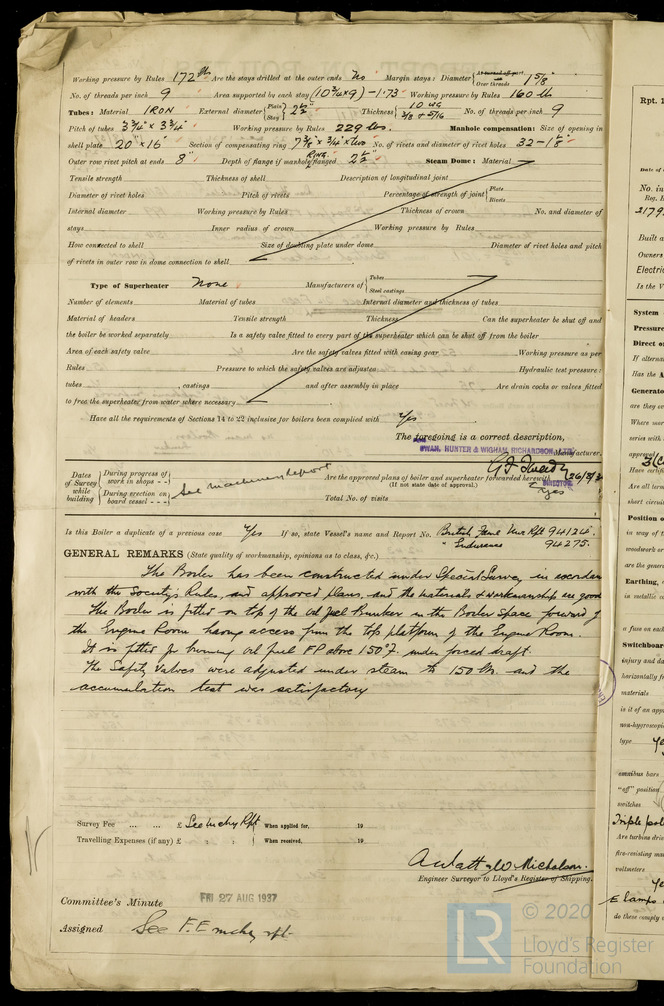 Working pressure by Rules 172 lb Are the stays drilled at the outer ends No Margin stays: Diameter { Over threads 1 5/8"
No. of threads per inch 9 Area supported by each stay (10 3/4 x 9) - 1.73 Working pressure by Rules 160 lb
Tubes: Material IRON External diameter { Plain Stay 2 1/2" Thickness { 10 WG 3/8 & 5/16 No. of threads per inch 9
Pitch of tubes 3 3/4" x 3 3/4" Working pressure by Rules 229 lbs. Manhole compensation: Size of opening in
shell plate 20" x 16" Section of compensating ring No. of rivets and diameter of rivet holes 32 - 1 1/8"
Outer row rivet pitch at ends 8" Depth of flange if manhole flanged RING 2 1/2" Steam Dome: Material
Tensile strength Thickness of shell Description of longitudinal joint
Diameter of rivet holes Pitch of rivets Percentage of strength of joint { Plate Rivets
Internal diameter Working pressure by Rules Thickness of crown No. and diameter of
stays Inner radius of crown Working pressure by Rules
How connected to shell Size of doubling plate under dome Diameter of rivet holes and pitch
of rivets in outer row in dome connection to shell
Type of Superheater None Manufacturers of { Tubes Steel castings
Number of elements Material of tubes Internal diameter and thickness of tubes
Material of headers Tensile strength Thickness Can the superheater be shut off and
the boiler be worked separately Is a safety valve fitted to every part of the superheater which can be shut off from the boiler
Area of each safety valve Are the safety valves fitted with easing gear Working pressure as per
Rules Pressure to which the safety valves are adjusted Hydraulic test pressure:
tubes , castings and after assembly in place Are drain cocks or valves fitted
to free the superheater from water where necessary
Have all the requirements of Sections 14 to 22 inclusive for boilers been complied with Yes
The foregoing is a correct description,
SWAN, HUNTER & WIGHAM RICHARDSON, LTD. Manufacturer.
DIRECTOR
Dates of Survey while building { During progress of work in shops - - During erection on board vessel - - - } See machinery Report Are the approved plans of boiler and superheater forwarded herewith Yes
(If not state date of approval.)
Total No. of visits
Is this Boiler a duplicate of a previous case Yes If so, state Vessel's name and Report No. British Fame Nwc Rpt 94124.
" Endurance 94275.
GENERAL REMARKS (State quality of workmanship, opinions as to class, &c.)
The Boiler has been constructed under Special Survey in accordan
with the Society's Rules, and approved plans, and the materials & workmanship are good
The Boiler is fitted on top of the Oil fuel Bunker in the Boiler Space forward of
the Engine Room having access from the top platform of the Engine Room.
It is fitted for burning Oil fuel F P above 150°F. under forced draft.
The Safety Valves were adjusted under steam to 150 lbs. and the
accumulation test was satisfactory
Survey Fee ... ... £ See mchy Rpt. When applied for, 19
Travelling Expenses (if any) £ : : When received, 19
Engineer Surveyor to Lloyd's Register of Shipping.
Committee's Minute FRI 27 AUG 1937
Assigned See F.E mchy rpt.
Rpt. 1
Date of
No. in
Reg. B
Built a
Owners
Electric
Is the V
System
Pressure
Direct or
If alterna
Has the A
Generato
are they o
Where mor
series with
approval
Have certifi
Are all term
short circui
Position o
in way of t
woodwork o
are the gener
Earthing,
in metallic c
a fuse on each
Switchboar
injury and da
horizontally f
materials
is it of an app
non-hygroscopi
type
omnibus bars
"off" position
switches
Triple pol
Are turbine driv
fire-resisting ma
voltmeters
E lamps
do these comply
LR © 2020
Lloyd's Register
Foundation